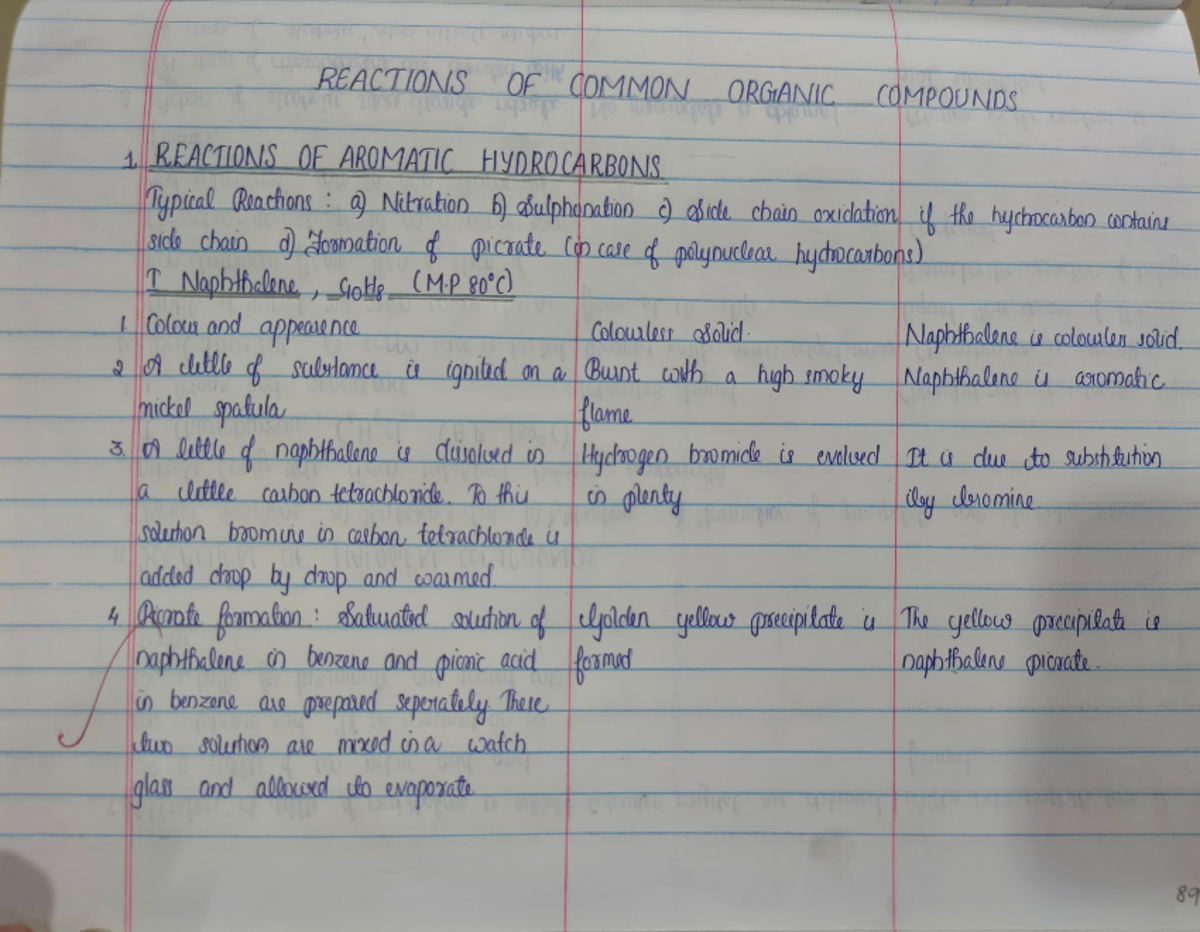 REACTIONS OF COMMON ORGANIC COMPOUNDS
1. REACTIONS OF AROMATIC HYDROCARBONS
Typical Reactions : a) Nitration b) Sulphonation c) Side chain oxidation if the hydrocarbon contains
side chain d) Formation of picrate (in case of polynuclear hydrocarbons)
I Naphthalene, C10H8 (M.P 80°C)
1. Colour and appearence Colourless solid. Naphthalene is colourless solid.
2 A little of substance is ignited on a Burnt with a high smoky Naphthalene is aromatic
nickel spatula flame
3. A little of naphthalene is dissolved in Hydrogen bromide is evolved It is due to substitution
a little carbon tetrachloride. To this in plenty by bromine
solution bromine in carbon tetrachloride is
added drop by drop and warmed.
4. Picrate formation : Saturated solution of Golden yellow precipitate is The yellow precipitate is
naphthalene in benzene and picric acid formed naphthalene picrate.
in benzene are prepared seperately. These
two solution are mixed in a watch
glass and allowed to evaporate
89